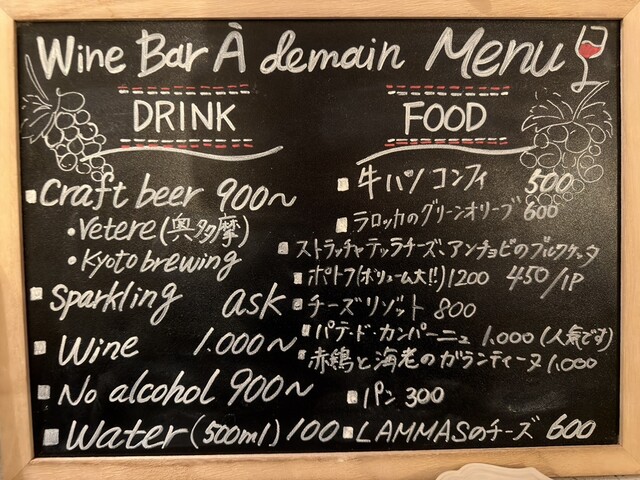 Wine Bar À demain Menu
DRINK
Craft beer 900~
・Vetere (奥多摩)
・Kyoto brewing
Sparkling ask
Wine 1.000~
No alcohol 900~
Water (500ml) 100
FOOD
牛ハツ コンフィ 500
ラロッカのグリーンオリーブ 600
ストラッチャテッラチーズ、アンチョビのブルスケッタ
450/1P
ポトフ(ボリューム大!!) 1200
チーズリゾット 800
パテ・ド・カンパーニュ 1.000 (人気です)
赤鶏と海老のガランティーヌ 1,000
パン 300
LAMMASのチーズ 600